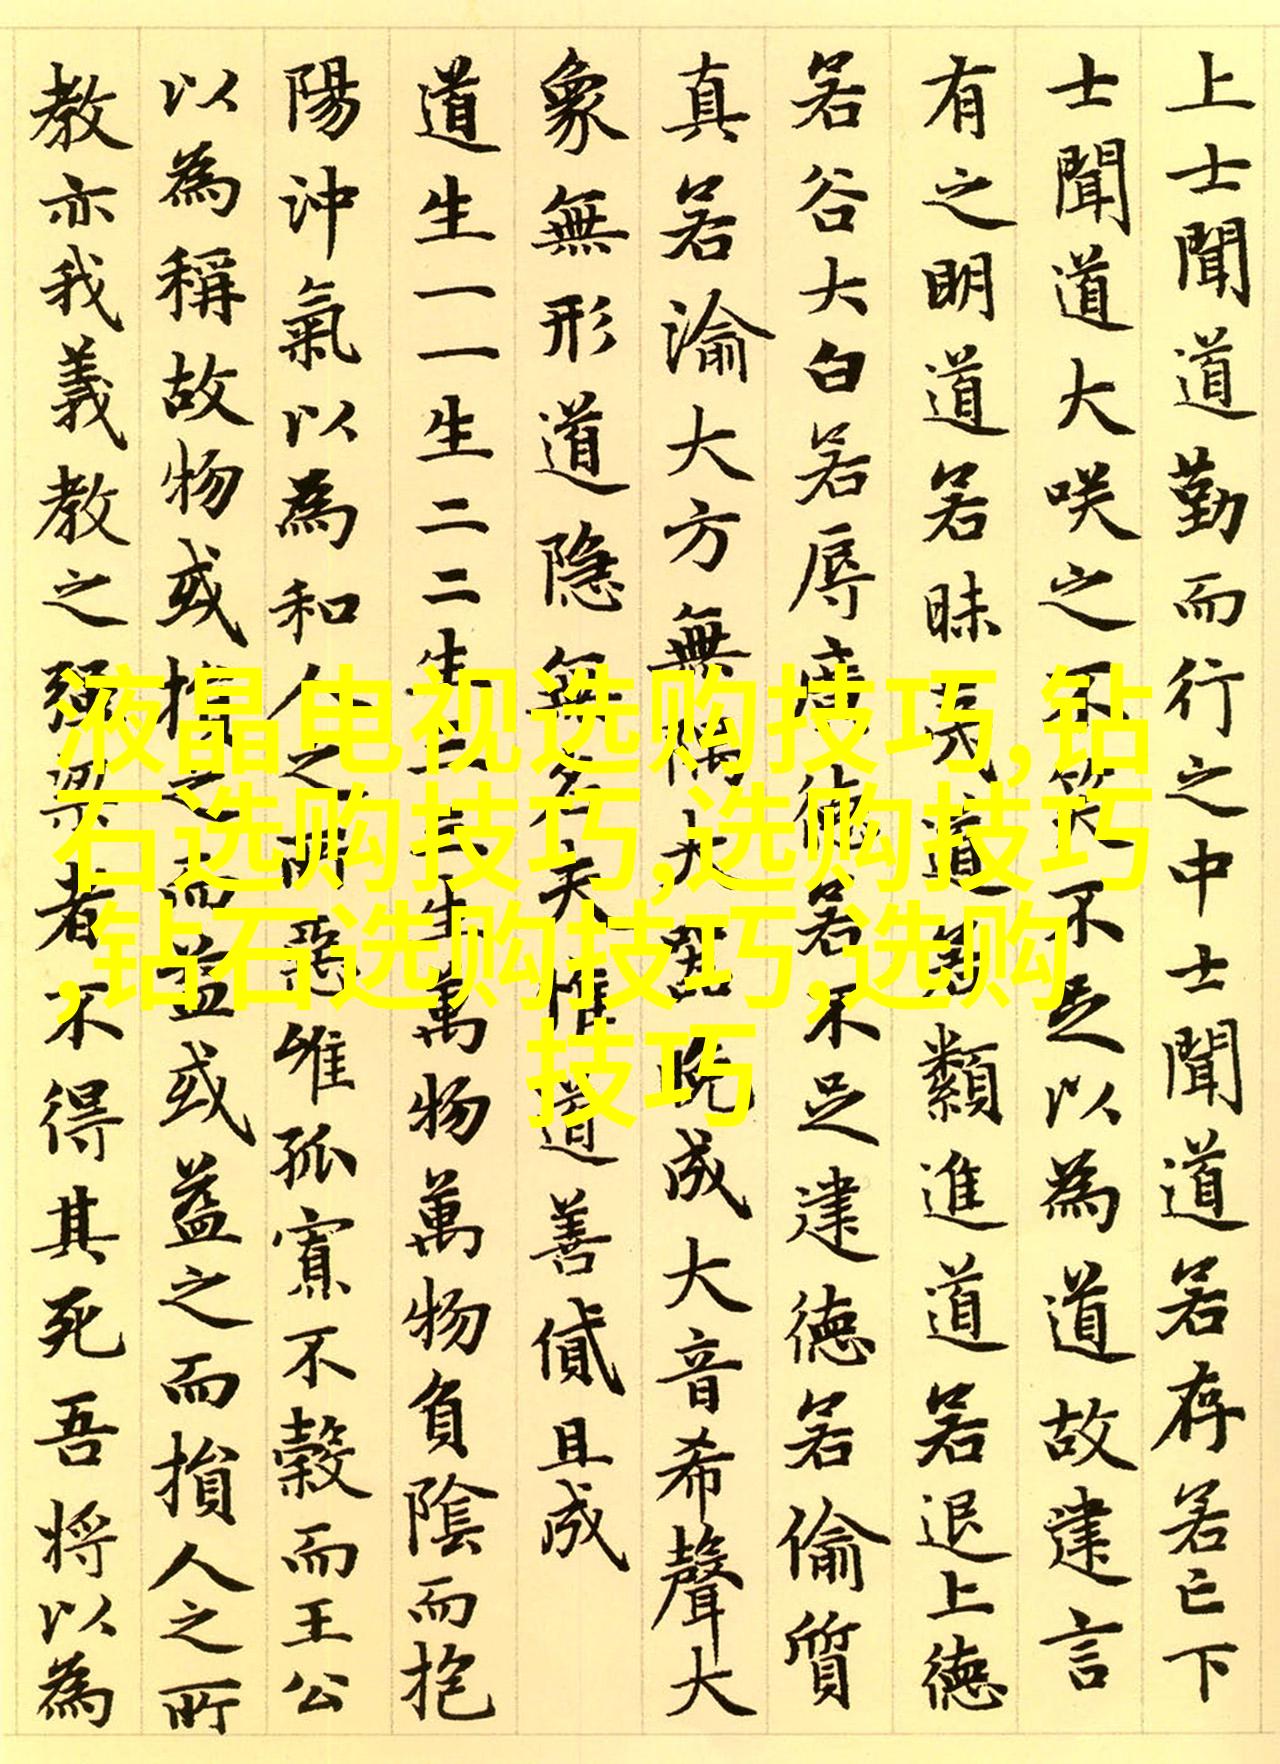 上士聞道勤而行之中士聞道若存若亡下
士聞道大咲之不笑不足以為道故建言
有之明道若昧夷道若纇進道若退上德
若谷大白若辱廣德若不足建德若偷質
真若渝大方無隅大器晚成大音希聲大
象無形道隐無名夫惟道善貸且成
道生一一生二二生三三生萬物萬物負陰而抱
陽沖氣以為和人之所惡唯孤寡不穀而王公
以為稱故物或損之而益或益之而損人之所
教亦我義教之强梁者不得其死吾将以為
液晶电视选购技巧,钻
石选购技巧,选购技巧
,钻石选购技巧,选购
技巧